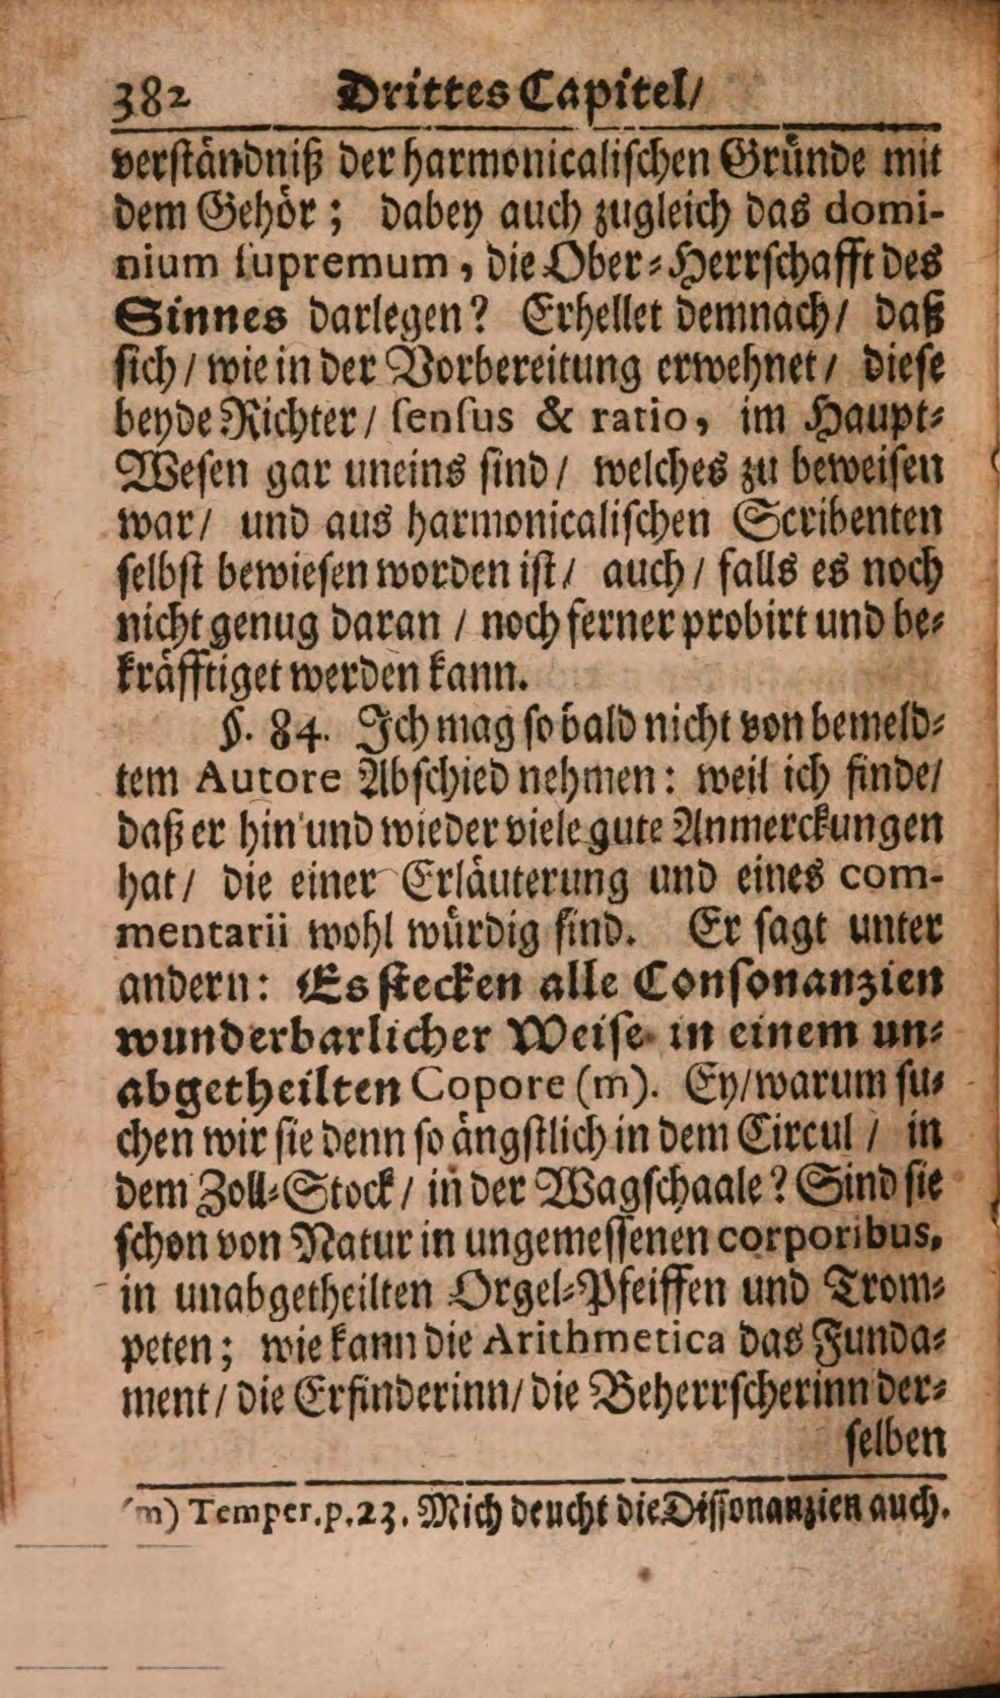 382 Drittes Capitel/
verständniß der harmonicalischen Gründe mit
dem Gehör; dabey auch zugleich das domi-
nium supremum, die Ober-Herrschafft des
Sinnes darlegen? Erhellet demnach/ daß
sich/ wie in der Vorbereitung erwehnet/ diese
beyde Richter/ sensus & ratio, im Haupt-
Wesen gar uneins sind/ welches zu beweisen
war/ und aus harmonicalischen Scribenten
selbst bewiesen worden ist/ auch/ falls es noch
nicht genug daran/ noch ferner probirt und be-
kräfftiget werden kann.
§. 84. Ich mag so bald nicht von bemeld-
tem Autore Abschied nehmen: weil ich finde/
daß er hin und wieder viele gute Anmerckungen
hat/ die einer Erläuterung und eines com-
mentarii wohl würdig sind. Er sagt unter
andern: Es stecken alle Consonanzien
wunderbarlicher Weise in einem un-
abgetheilten Copore (m). Ey/ warum su-
chen wir sie denn so ängstlich in dem Circul/ in
dem Zoll-Stock/ in der Wagschaale? Sind sie
schon von Natur in ungemessenen corporibus,
in unabgetheilten Orgel-Pfeiffen und Trom-
peten; wie kann die Arithmetica das Funda-
ment/ die Erfinderinn/ die Beherrscherinn der-
selben
(m) Temper. p. 23. Mich deucht die Dissonanzien auch.